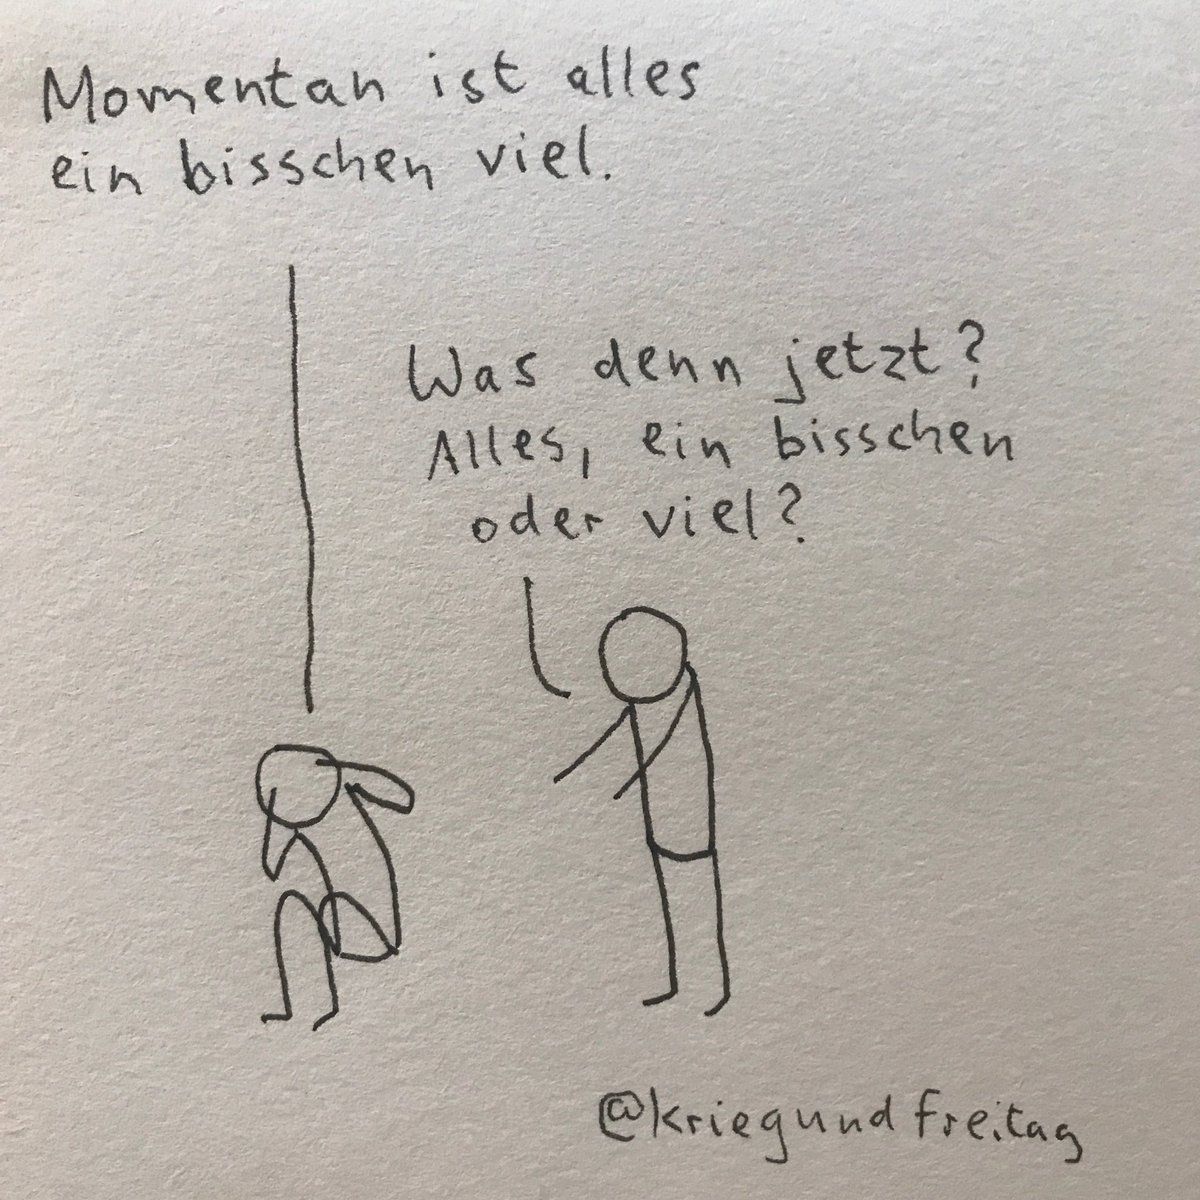 Momentan ist alles
ein bisschen viel.
Was denn jetzt?
Alles, ein bisschen
oder viel?
@kriegundfreitag